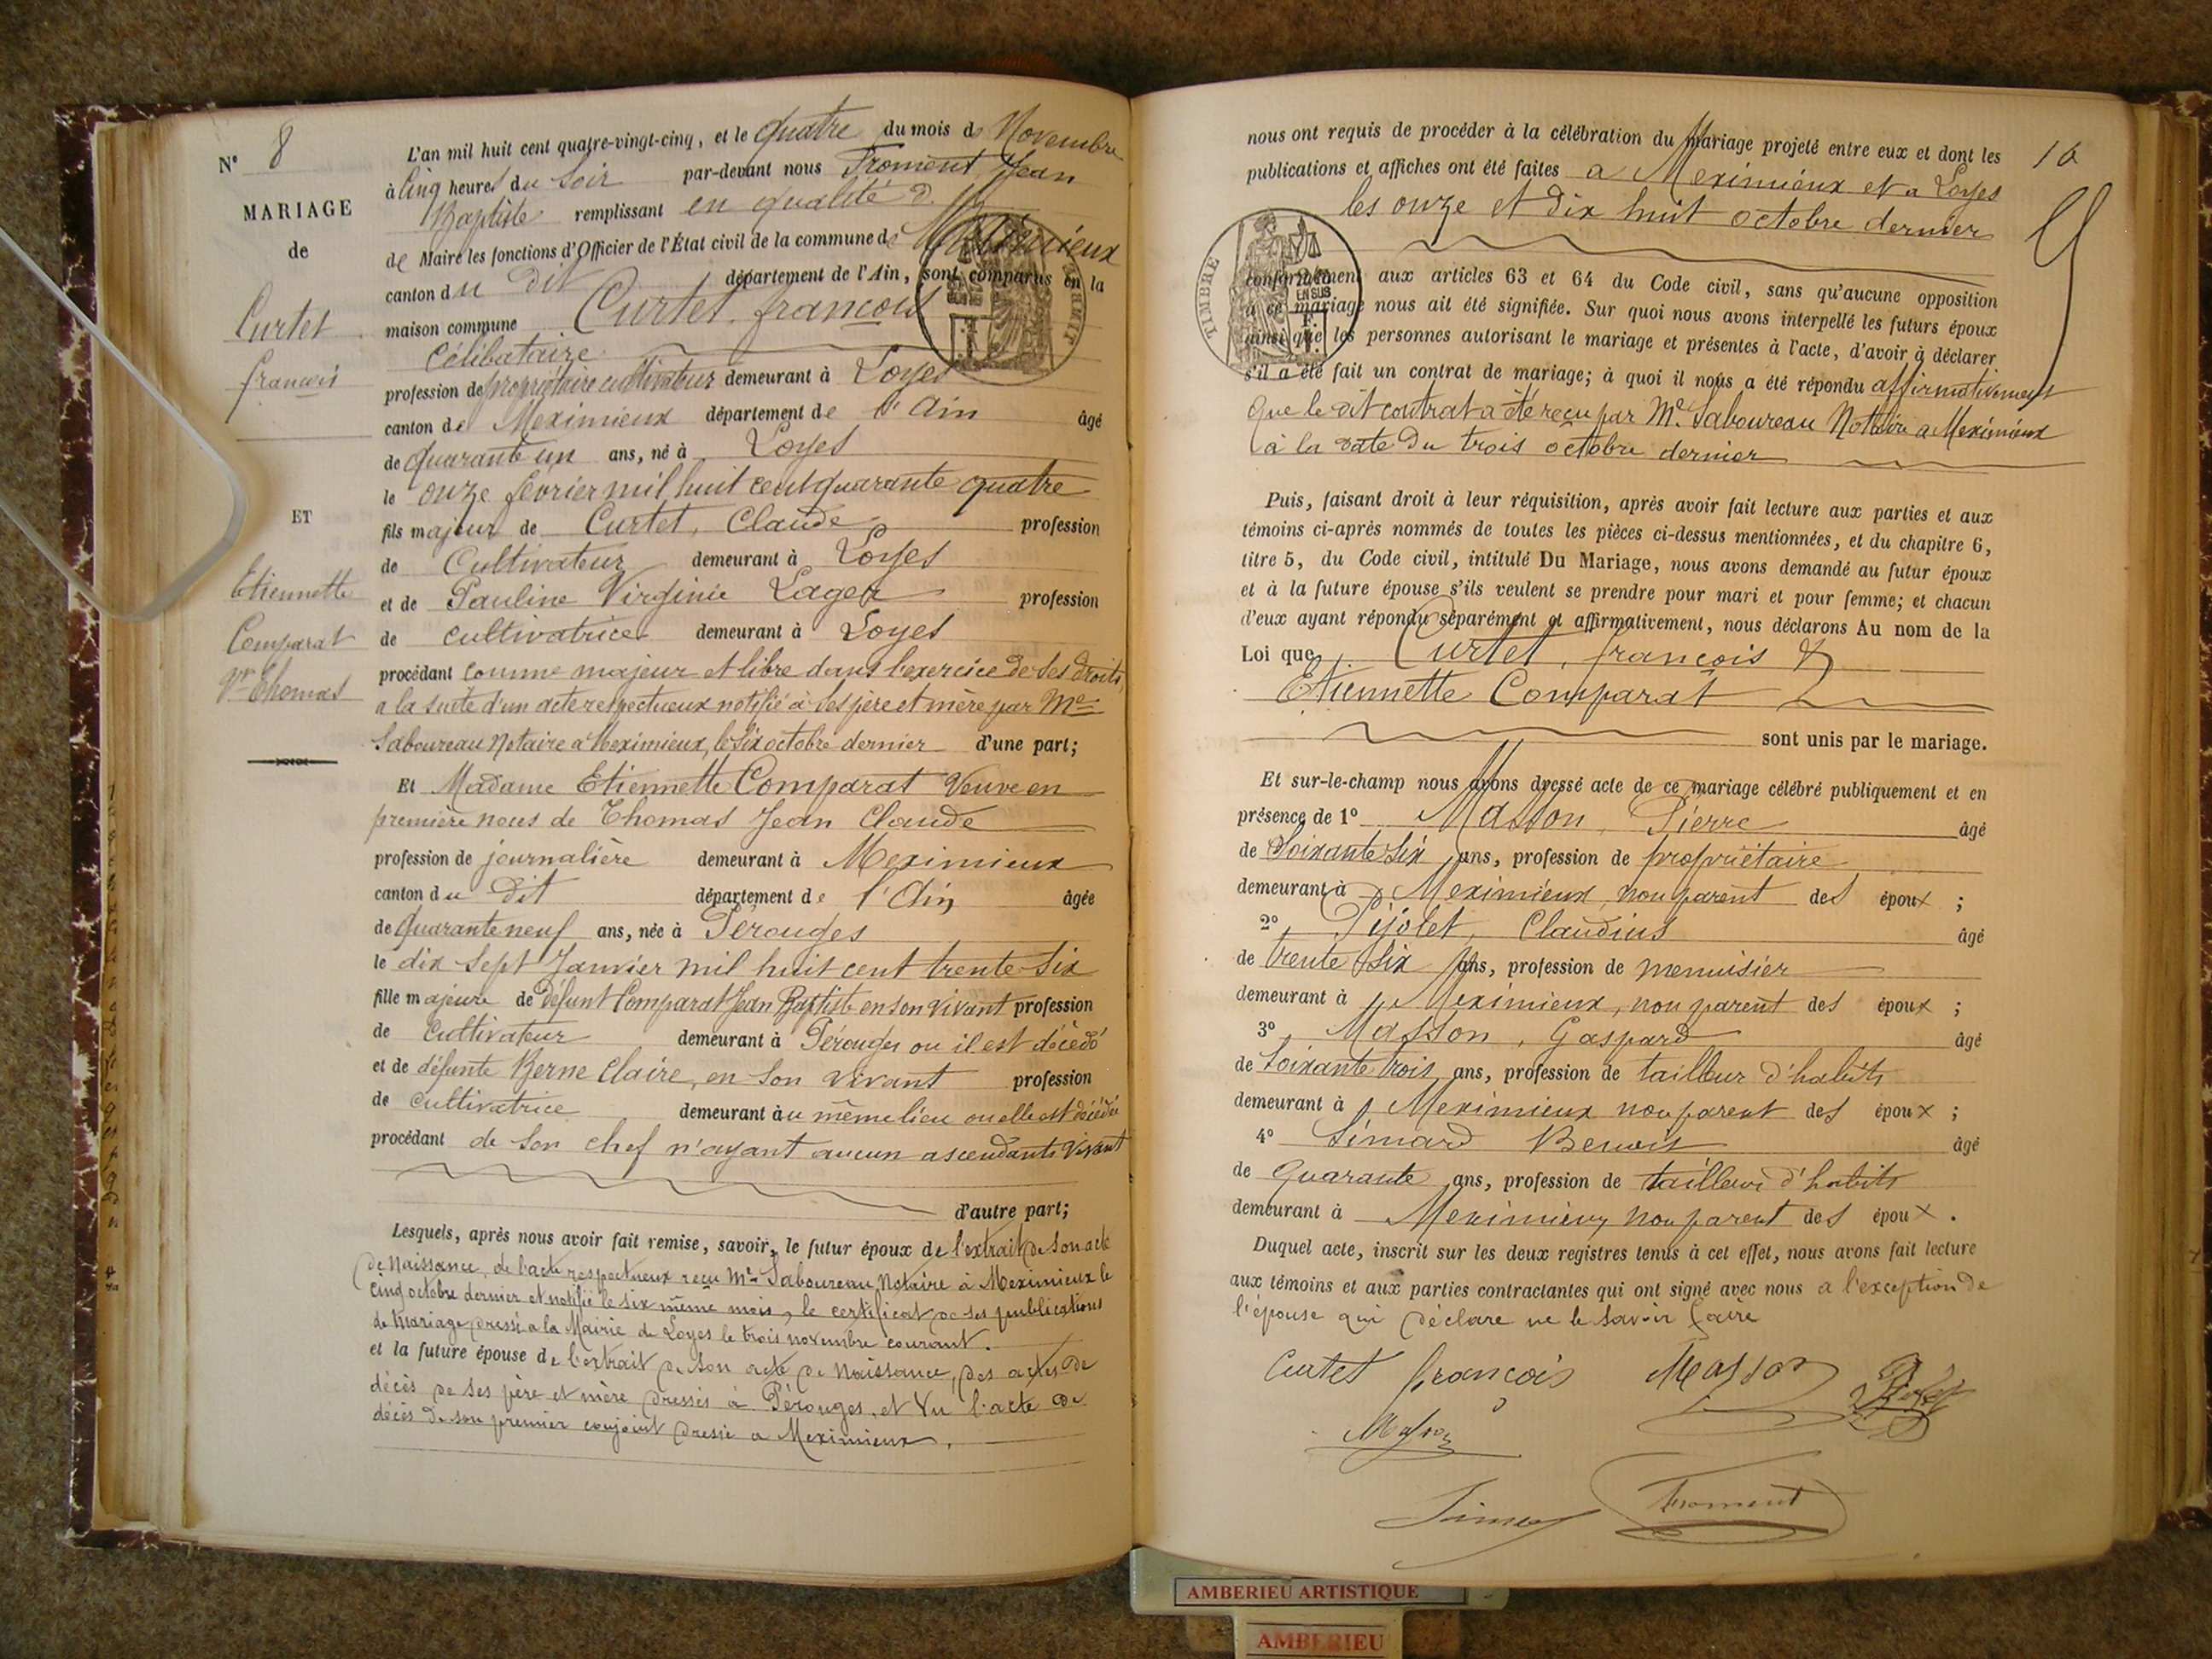 N° 8
MARIAGE
de
Curtet
françois
ET
Etiennette
Comparat
Vve Thomas
L'an mil huit cent quatre-vingt-cinq, et le quatre du mois de Novembre
à cinq heures du soir par-devant nous Froment Jean
Baptiste remplissant en qualité d
de Maire les fonctions d'Officier de l'État civil de la commune de Meximieux
canton du dit département de l'Ain, sont comparus en la
maison commune Curtet françois
Célibataire
profession de propriétaire cultivateur demeurant à Loyes
canton de Meximieux département de l'Ain âgé
de quarante un ans, né à Loyes
le onze février mil huit cent quarante quatre
fils majeur de Curtet, Claude profession
de Cultivateur demeurant à Loyes
et de Pauline Virginie Lager profession
de cultivatrice demeurant à Loyes
procédant comme majeur et libre dans l'exercice de ses droits,
a la suite d'un acte respectueux notifié à ses père et mère par Me
Saboureau Notaire a Meximieux, le six octobre dernier d'une part;
Et Madame Etiennette Comparat Veuve en
première noces de Thomas Jean Claude
profession de journalière demeurant à Meximieux
canton du dit département de l'Ain âgée
de quarante neuf ans, née à Pérouges
le dix sept Janvier mil huit cent trente six
fille majeure de défunt Comparat Jean Baptiste en son vivant profession
de cultivateur demeurant à Pérouges ou il est décédé
et de défunte Berne Claire, en son vivant profession
de cultivatrice demeurant au même lieu ou elle est décédée
procédant de son chef n'ayant aucun ascendants vivant
d'autre part;
Lesquels, après nous avoir fait remise, savoir, le futur époux de l'extrait de son acte
de Naissance, de l'acte respectueux reçu Me Saboureau Notaire à Meximieux le
cinq octobre dernier et notifié le six même mois, le certificat de ses publications
de Mariage dressé a la Mairie de Loyes le trois novembre courant.
et la future épouse de l'extrait de son acte de Naissance, des actes de
décès de ses père et mère dressés à Pérouges, et Vu l'acte de
décès de son premier conjoint dressé a Meximieux.
nous ont requis de procéder à la célébration du Mariage projeté entre eux et dont les
publications et affiches ont été faites a Meximieux et a Loyes
les onze et dix huit octobre dernier
conformément aux articles 63 et 64 du Code civil, sans qu'aucune opposition
à ce mariage nous ait été signifiée. Sur quoi nous avons interpellé les futurs époux
ainsi que les personnes autorisant le mariage et présentes à l'acte, d'avoir à déclarer
s'il a été fait un contrat de mariage; à quoi il nous a été répondu affirmativement
que le dit contrat a été reçu par Me Saboureau Notaire a Meximieux
à la date du trois octobre dernier
Puis, faisant droit à leur réquisition, après avoir fait lecture aux parties et aux
témoins ci-après nommés de toutes les pièces ci-dessus mentionnées, et du chapitre 6,
titre 5, du Code civil, intitulé Du Mariage, nous avons demandé au futur époux
et à la future épouse s'ils veulent se prendre pour mari et pour femme; et chacun
d'eux ayant répondu séparément et affirmativement, nous déclarons Au nom de la
Loi que Curtet, françois &
Etiennette Comparat
sont unis par le mariage.
Et sur-le-champ nous avons dressé acte de ce mariage célébré publiquement et en
présence de 1° Masson, Pierre âgé
de soixante six ans, profession de propriétaire
demeurant à Meximieux, non parent des époux ;
2° Pijolet, Claudius âgé
de trente six ans, profession de menuisier
demeurant à Meximieux, non parent des époux ;
3° Masson, Gaspard âgé
de soixante trois ans, profession de tailleur d'habits
demeurant à Meximieux non parent des époux ;
4° Simard Benoit âgé
de quarante ans, profession de tailleur d'habits
demeurant à Meximieux non parent des époux.
Duquel acte, inscrit sur les deux registres tenus à cet effet, nous avons fait lecture
aux témoins et aux parties contractantes qui ont signé avec nous a l'exception de
l'épouse qui déclare ne le savoir faire
Curtet françois Masson
Masson
Froment
TIMBRE
AMBERIEU ARTISTIQUE
AMBERIEU